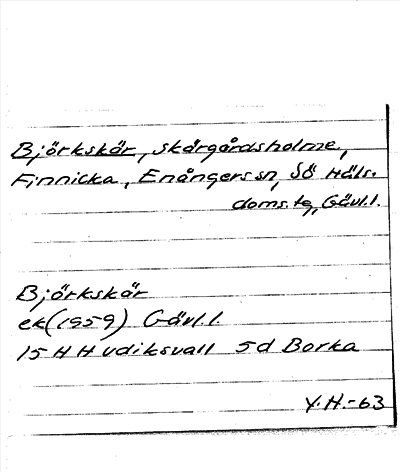 Björkskär, skärgårdsholme,
Finnicka, Enångers sn, Sö Häls.
doms.tg, Gävl.l.
Björkskär
ek (1959) Gävl.l.
15 H Hudiksvall 5d Borka
Y.H.-63